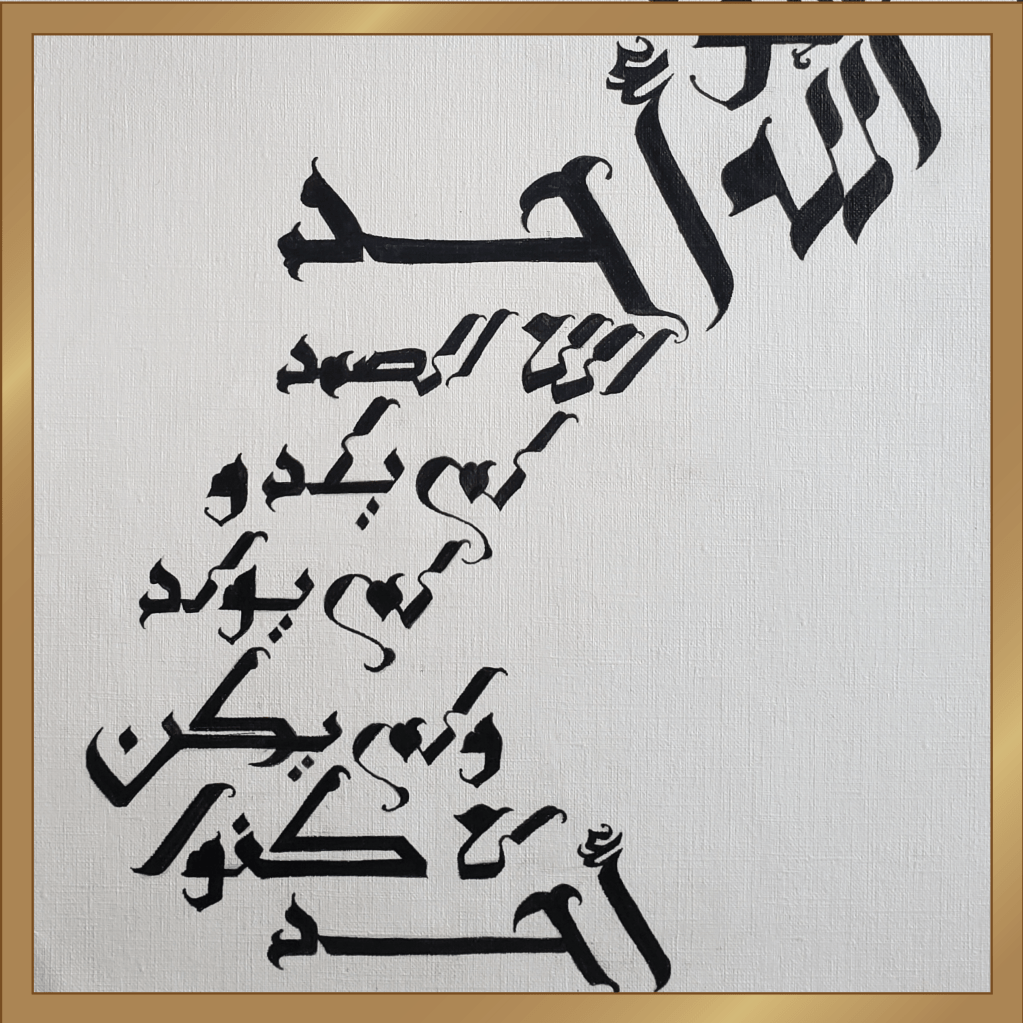 الله أحد
الله الصمد
لم يلد و
لم يولد
ولم يكن
له كفوا
أحد